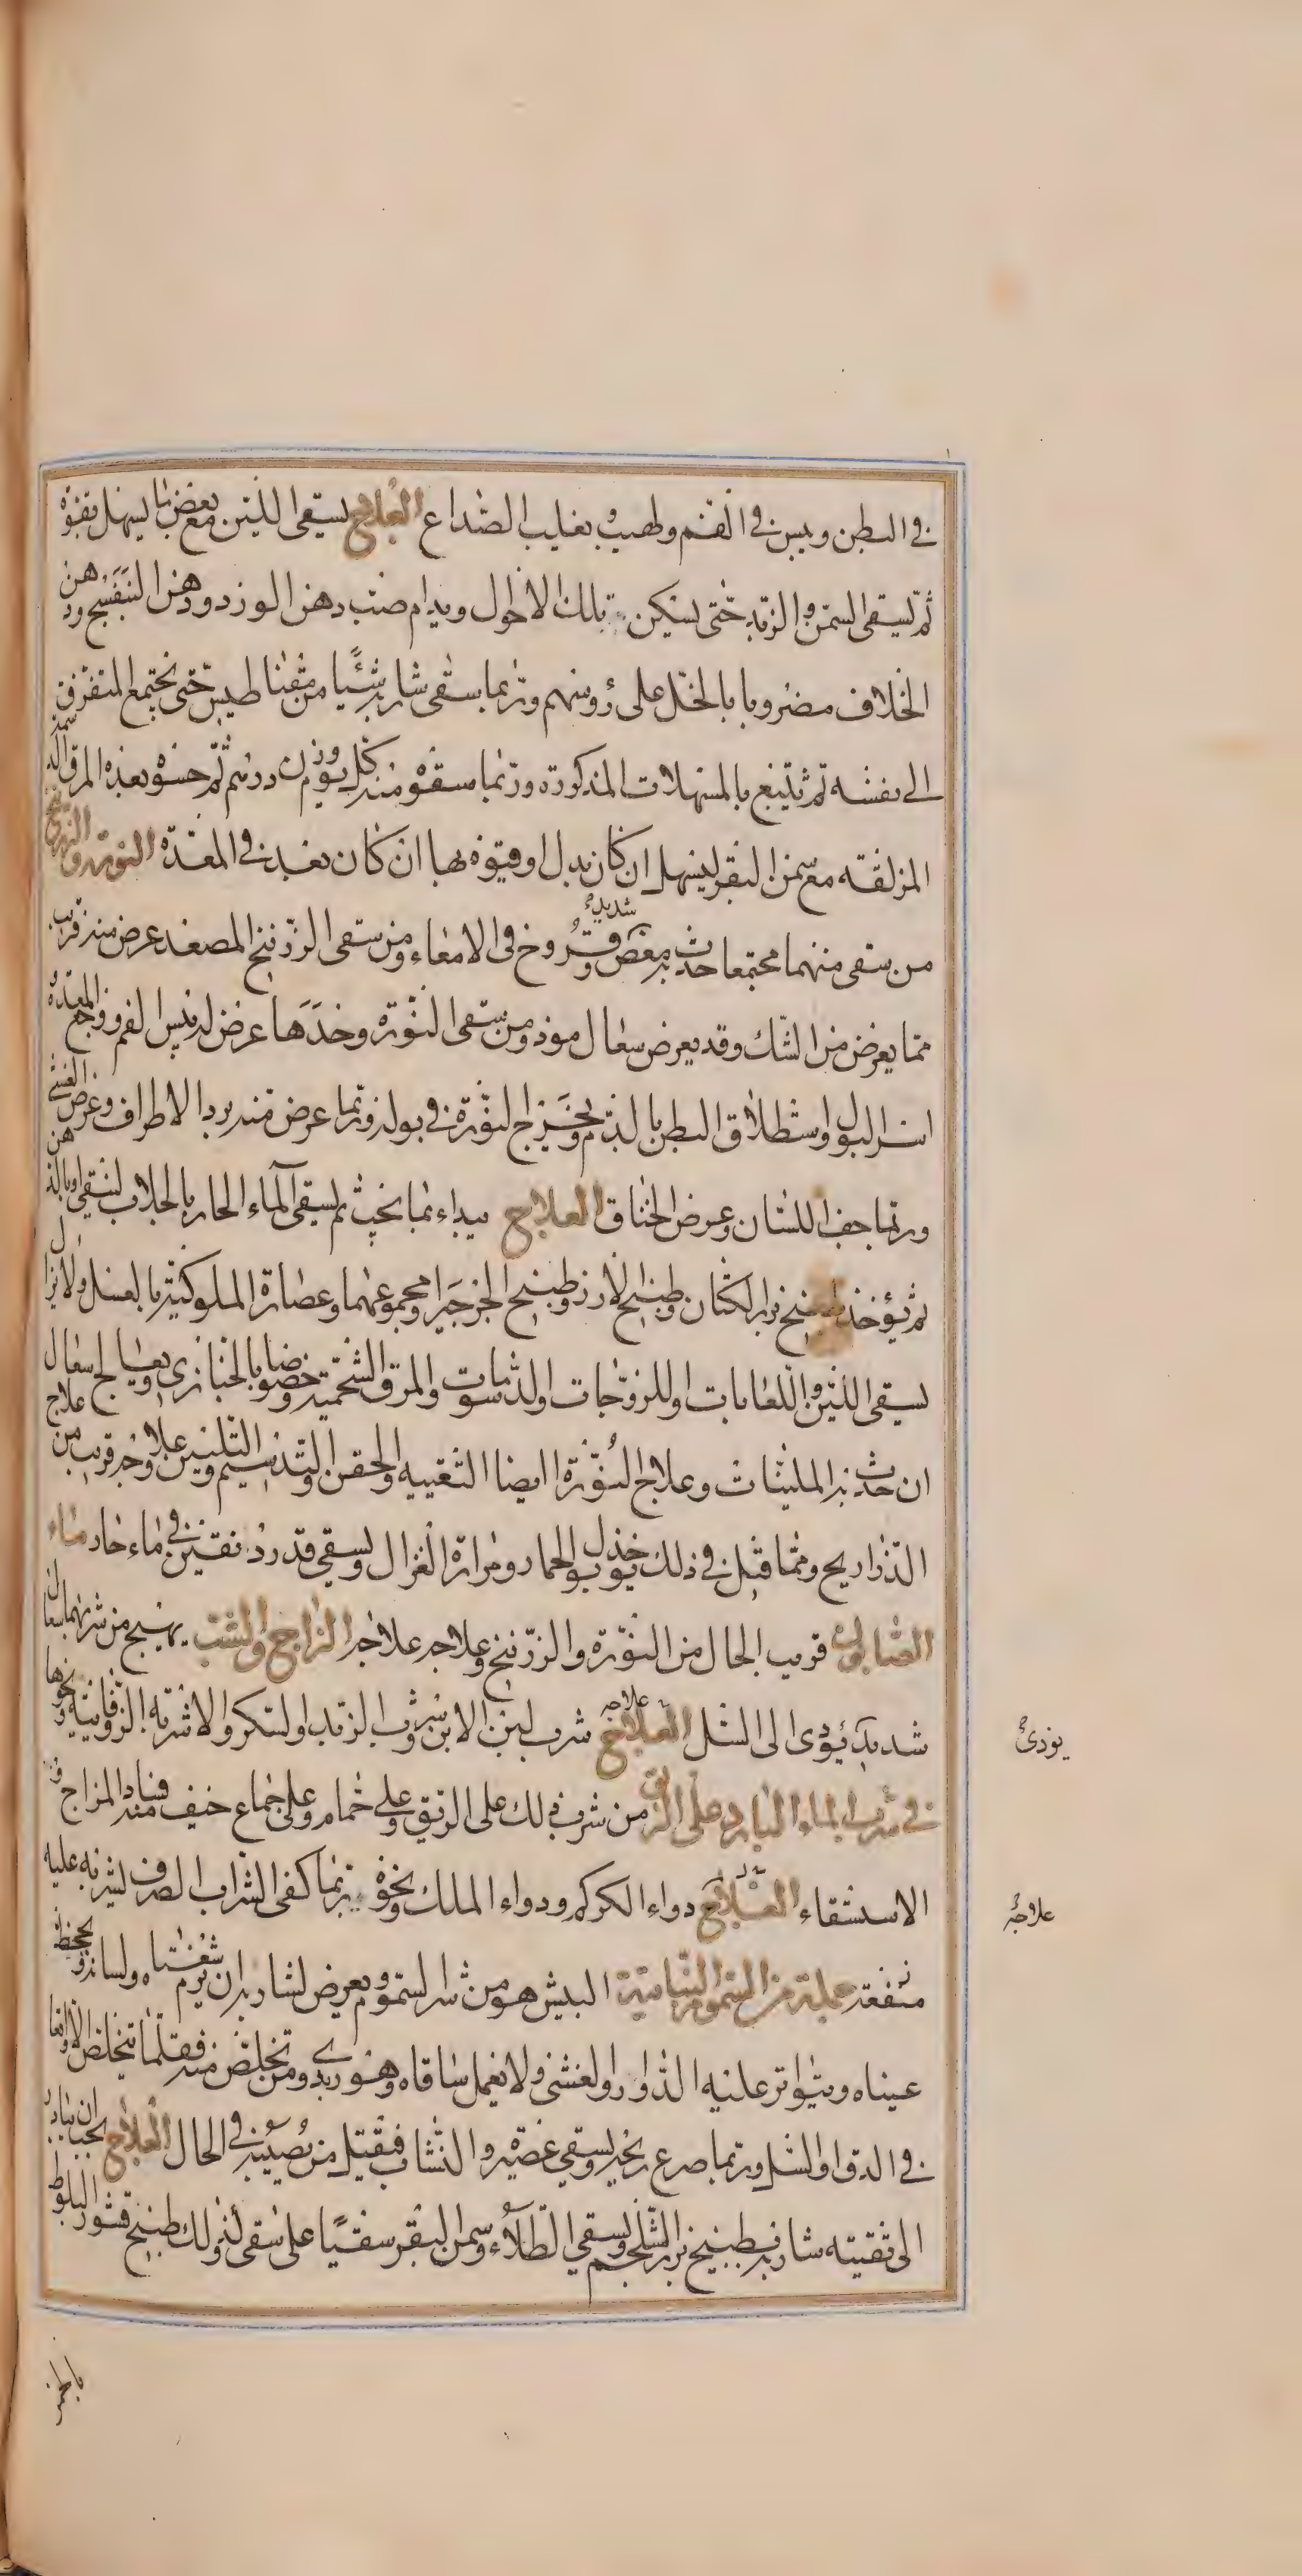 في البطن ويبس في الفم ولهيب ويغلب الصداع العلاج يسقى اللبن مع بعض ما يسهل بقوة
ثم يسقى السمن والزبد حتى يسكن تلك الاحوال ويدام صب دهن الورد ودهن البنفسج ودهن
الخلاف مضروبا بالخل على رؤوسهم وربما يسقى شاربه شيئا من مغناطيس حتى يجتمع المتفرق
الى نفسه ثم يتبع بالمسهلات المذكورة وربما سقوه منه كل يوم وزن درهم ثم حسوه بعده المرق الدسمة
المزلقة مع سمن البقر ليسهل ان كان نزل او قيؤه بها ان كان بعد في المعدة النورة والزرنيخ
من سقى منهما مجتمعا حدث به مغص وقروح في الامعاء شديدة ومن سقى الزرنيخ المصعد عرض منه قريب
مما يعرض من الشك وقد يعرض سعال موذ ومن سقى النورة وحدها عرض له يبس الفم ووجع المعدة و
اسر البول واستطلاق البطن بالدم ويخرج النورة في بوله وربما عرض منه برد الاطراف وعرض الغشى
وربما جف اللسان وعرض الخناق العلاج يبداء بما يجب ثم يسقى الماء الحار بالجلاب لتنقى او بالدهن
ثم يؤخذ طبيخ بزر الكتان وطبيخ الارز وطبيخ الجرجير او مجموعهما وعصارة الملوكية بالعسل ولا يزال
يسقى اللبن واللعابات او اللزوجات او الدسومات والمرق الشحمية وخصوصا بالخبازى ويعالج سعال
ان حدث به بالملينات وعلاج النورة ايضا التقييه والحقن والتدسيم والتليين علاوجه قريب من علاج
الذراريح ومما قيل في ذلك خذ بول الحمار ومرارة الغزال ويسقى قدر دنقين في ماء حار ماء
الصابون قريب الحال من النورة والزرنيخ وعلاجه علاجه الزاج والشب يهيج من شربهما سعال
شديد يؤدى الى السل العلاج علاجه شرب لبن الاتن وشرب الزبد او السكر والاشربة الزوفانية ونحوها
في شرب الماء البارد على الريق من شرب ذلك على الريق وعلى حمام وعلى جماع خيف منه فساد المزاج و
الاستسقاء العلاج دواء الكركم ودواء الملك ونحوه وربما كفى الشراب الصرف لشربه عليه
منفعته جملة من السموم النباتية البيش هو من شر السموم ويعرض لشاربه ان يرم شفتاه ولسانه وتجحظ
عيناه ويتواتر عليه الدوار والغشى ولا يعمل ساقاه وهو ردى ومن تخلص منه فقلما يتخلص الا واقعا
في الدق او السل وربما صرع ريحه ويسقى عصيره والنشاب فيقتل من يصيبه في الحال العلاج يجب ان يبادر
الى تقيئه شاربه بطبيخ بزر الشلجم ويسقى الطلاء وسمن البقر سقيا على سقى كذلك طبيخ قشور البلوط
يؤدى
علاجه
بالخمر